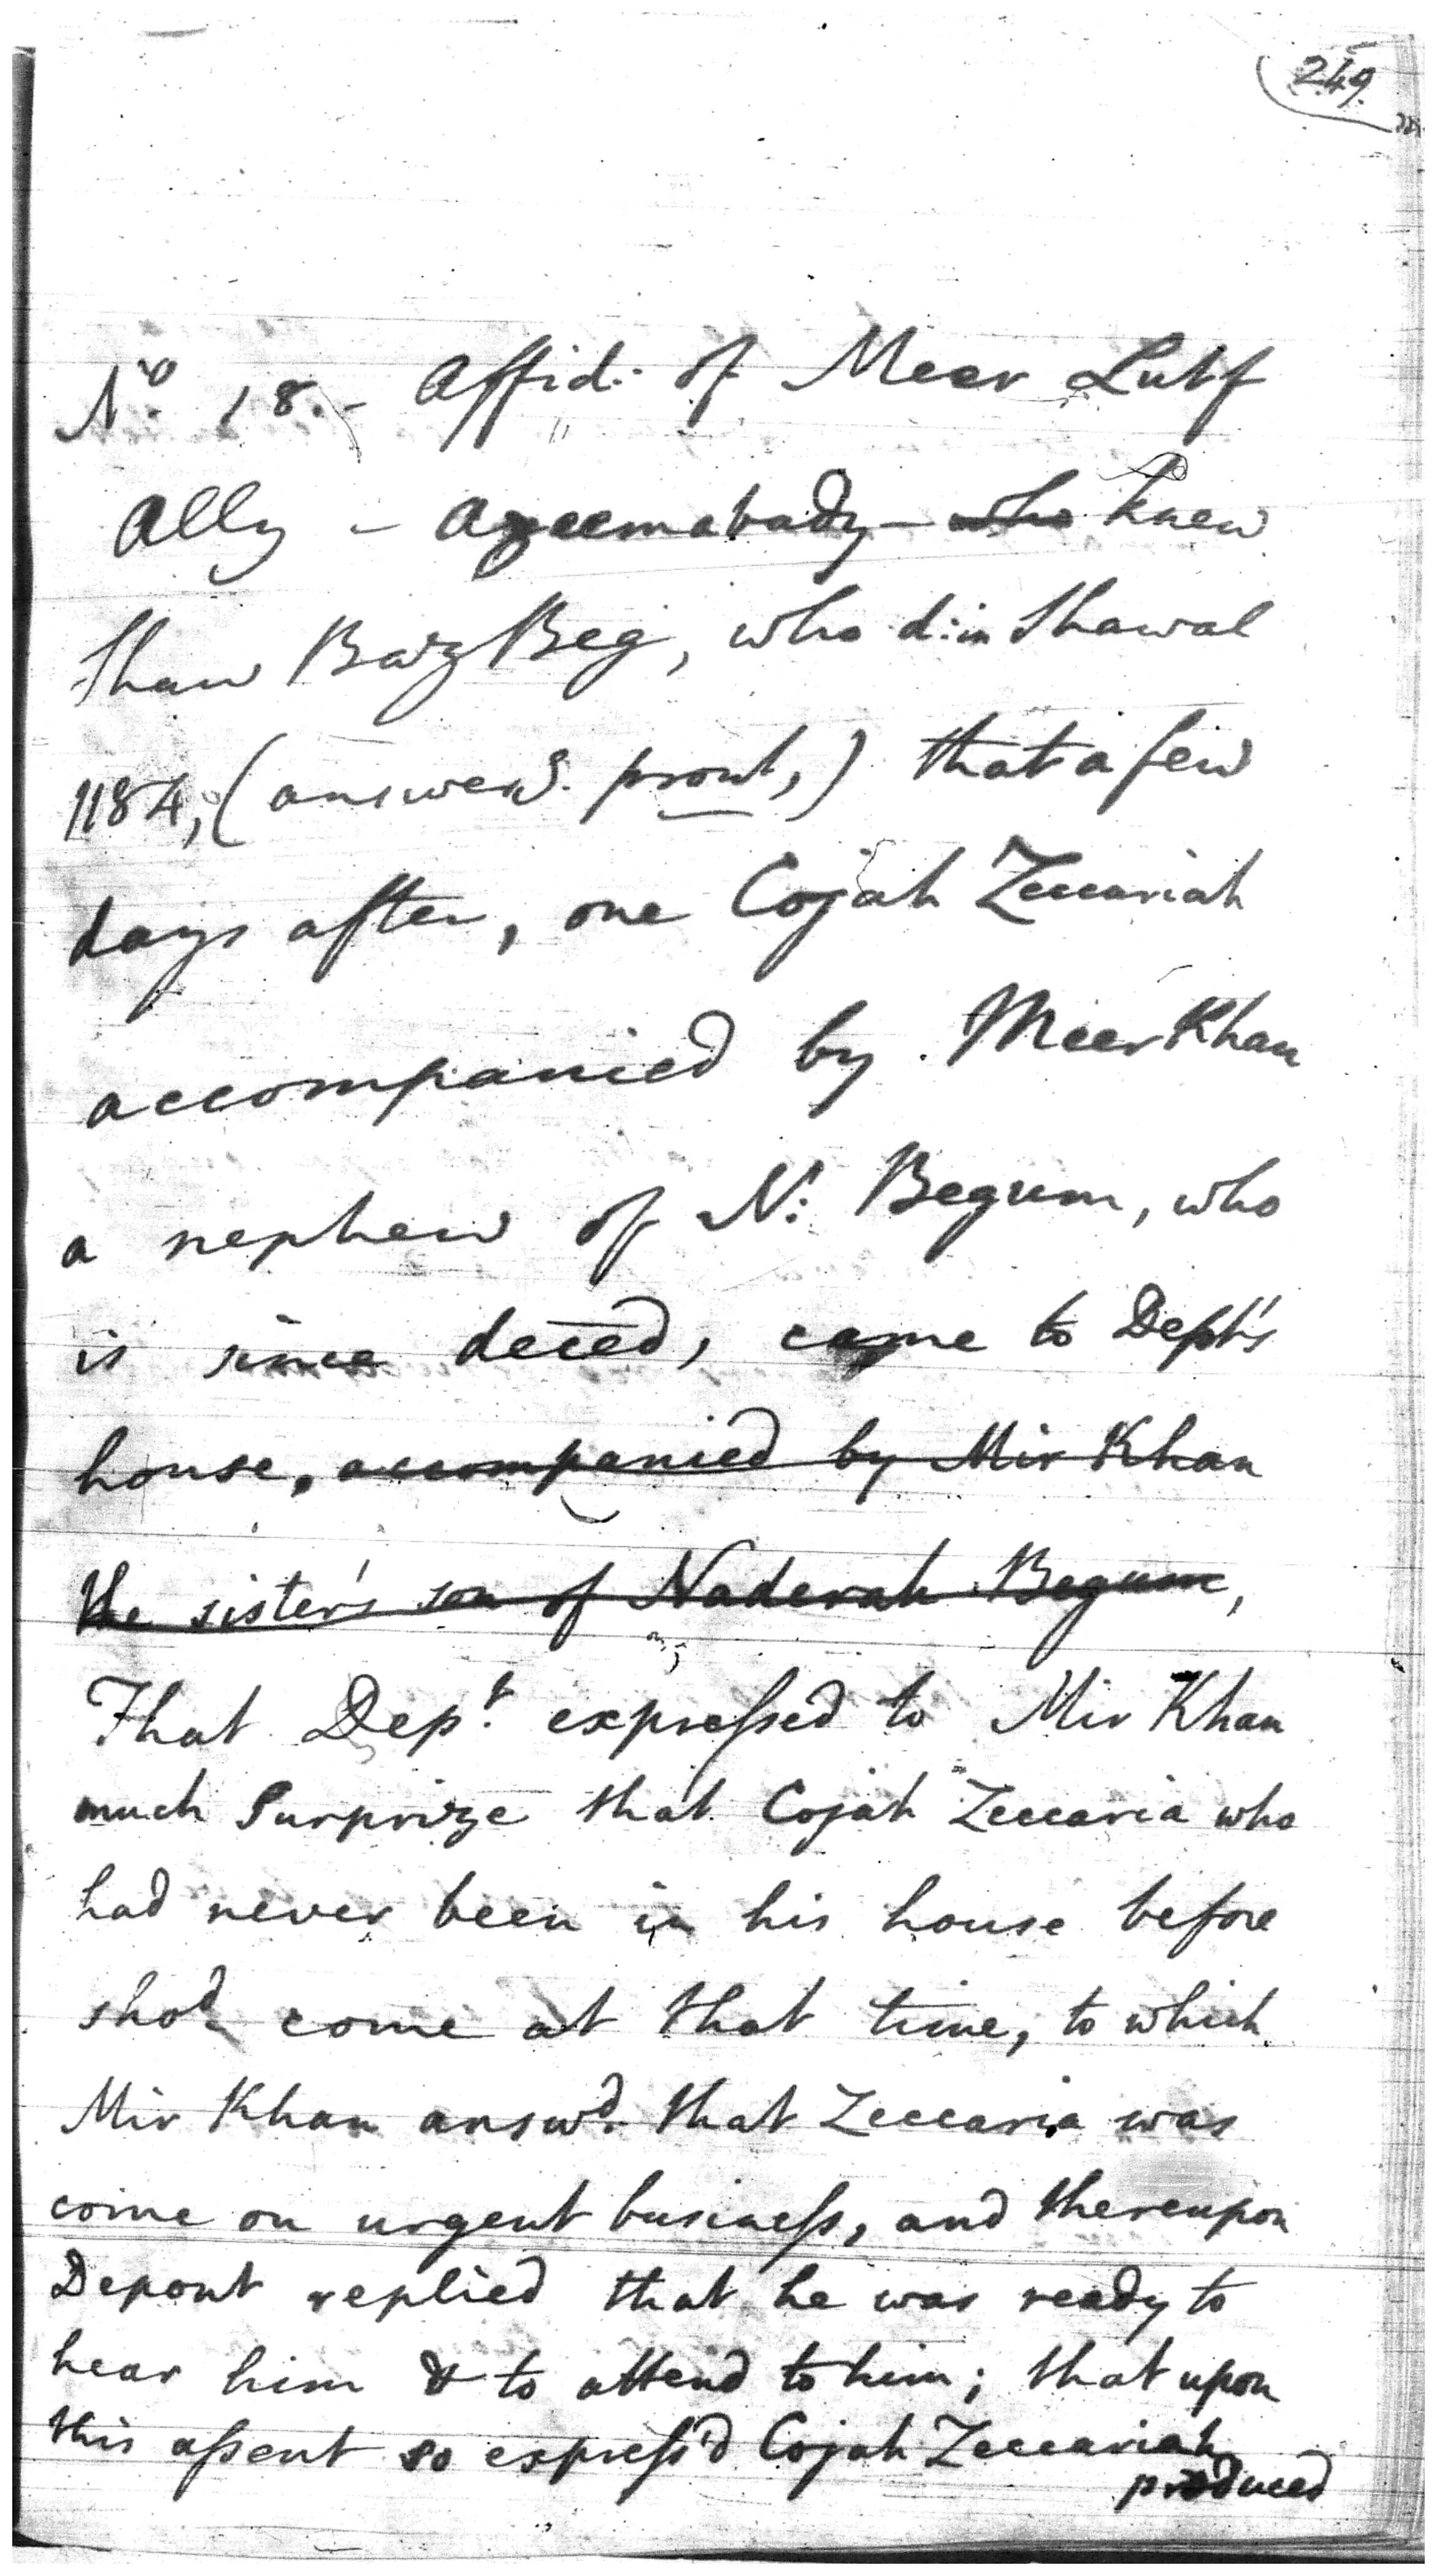 249.
No. 18. - Affid: of Meer Lutf
Ally - Azeemabady - who knew
Shaw Baz Beg, who d: in Shawal
1184, (answerd. prout,) that a few
days after, one Cojah Zeccariah
accompanied by Meer Khan
a nephew of N: Begum, who
is since deced, came to Dept's
house, accompanied by Mir Khan
the sister's son of Naderah Begum,
That Dept. expressed to Mir Khan
much Surprize that Cojah Zeccaria who
had never been in his house before
shod come at that time, to which
Mir Khan answd. that Zeccaria was
come on urgent business, and thereupon
Depont replied that he was ready to
hear him & to attend to him; that upon
this assent so express'd Cojah Zeccariah
produced